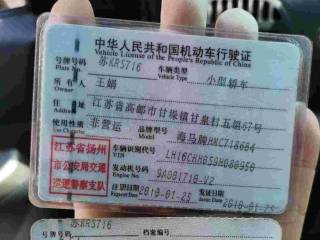 中华人民共和国机动车行驶证
Vehicle License of the People's Republic of China
号牌号码 苏KR5716 车辆类型 小型轿车
Plate No. Vehicle Type
所有人 王娟
Owner
住址 江苏省高邮市甘垛镇甘泉村五组67号
Address
使用性质 非营运 品牌型号 海马牌HMC7186A4
Use Character Model
江苏省扬州
市公安局交通
巡逻警察支队
车辆识别代号
VIN
发动机号码
Engine No.
注册日期 2010-01-25 发证日期 2010-01-25
Register Date Issue Date
苏KR5716
号牌号码 档案编号